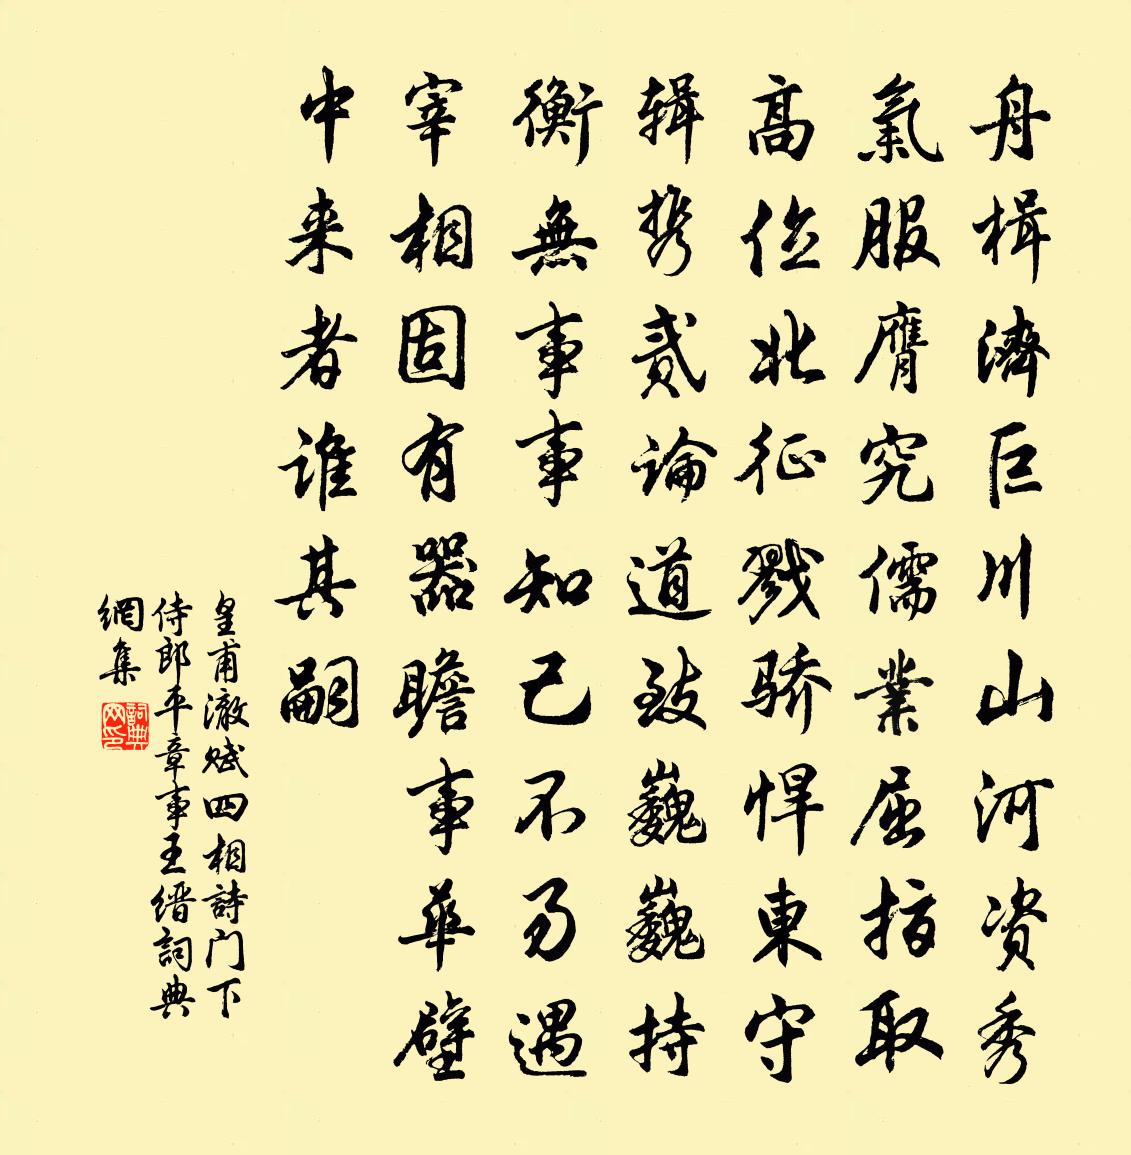 舟楫濟巨川山河资秀
氣服膺究儒業屈指取
高位北征戮骄悍東守
辑携贰論道致巍巍持
衡無事事知己不易遇
宰相固有器瞻事華壁
中来者谁其嗣
皇甫澈赋四相詩门下
侍郎平章事王缙詞典
網集
詞典网印